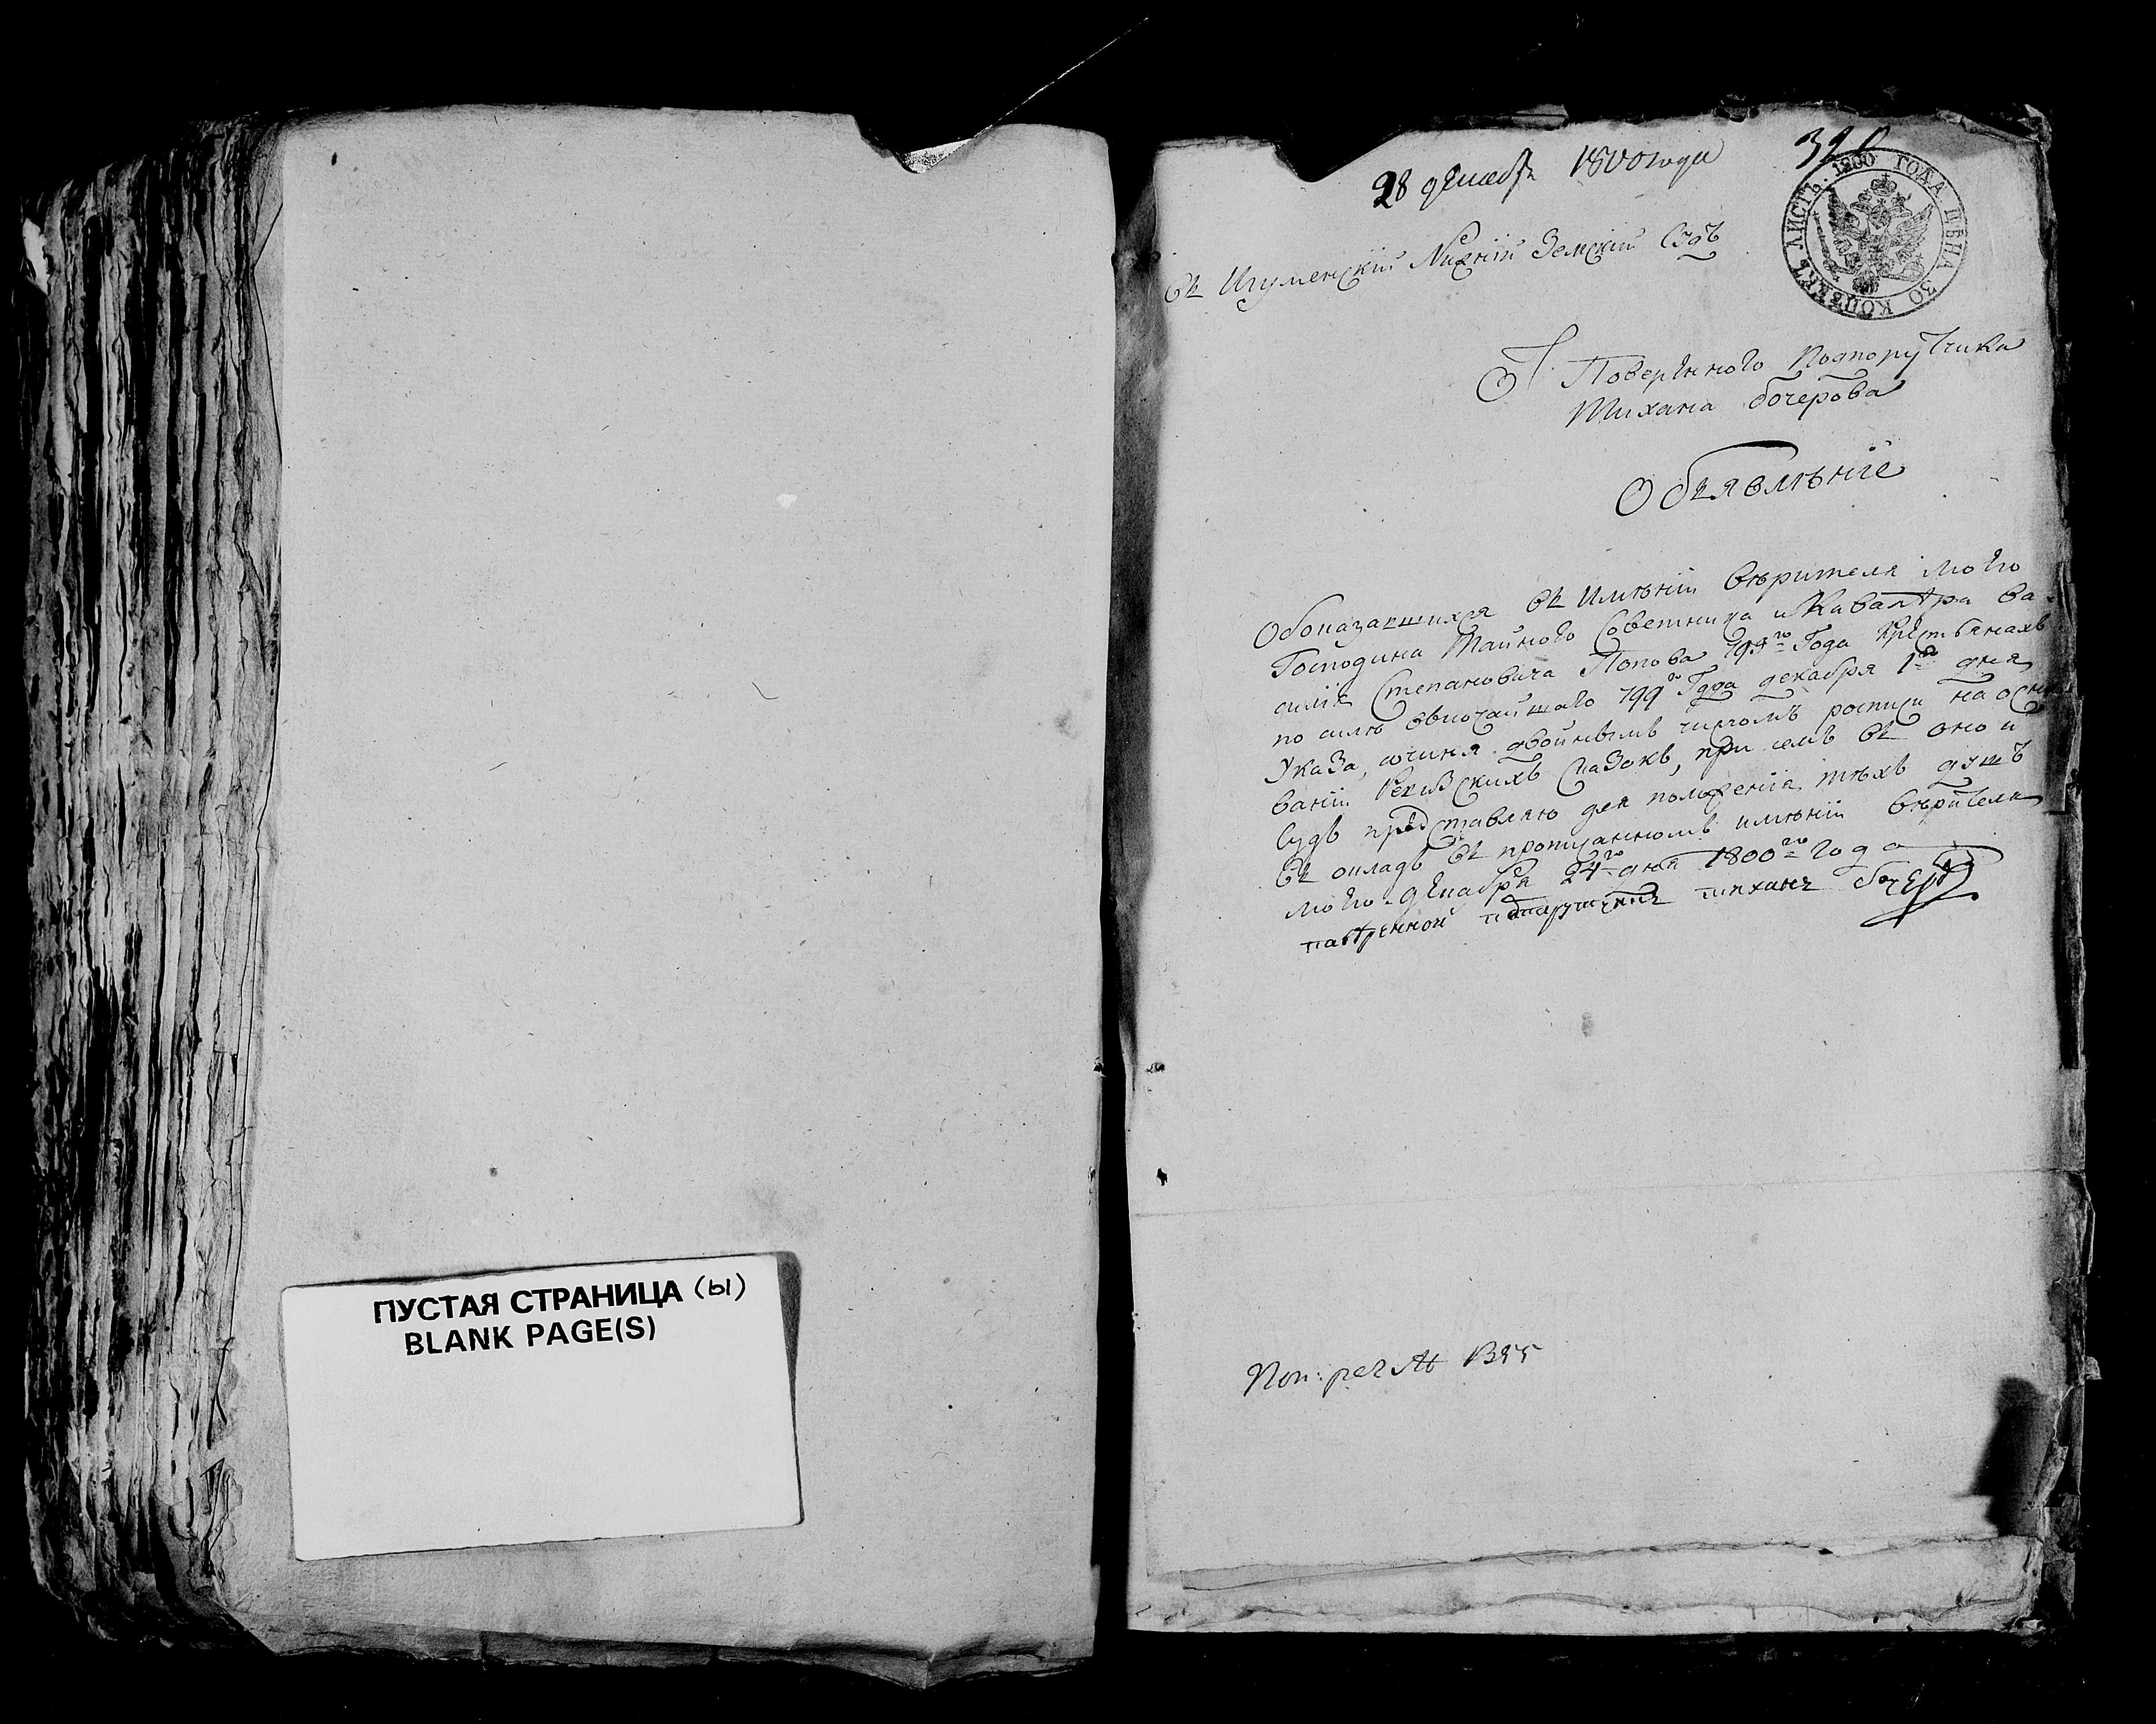 ПУСТАЯ СТРАНИЦА (ы)
BLANK PAGE(S)
28 декабр 1800 года
ЛИСТЪ. 1800 ГОДА ЦѢНА 30 КОПѢЕКЪ
Въ Игуменский Нижний Земский Судъ
От Повереного Подпоручика
Тихана бочерова
Обьявлѣніе
Обоказавшихся въ имѣніи вѣрителя моего
Господина Тайного Советника и Кавалера Ва-
силія Степановича Попова Года крестьянахъ
по силѣ высочайшаго 799го Года декабря 1го дня
Указа, учиня двойнымъ числомъ росписи на осно
ваніи Ревизскихъ сказокъ, при семъ въ оно и
Судъ представляю для положенія тѣхъ душъ
въ окладъ въ прописанномъ имѣніи вѣрителя
моего. декабря 24го дня 1800го года
Тихане бочеров